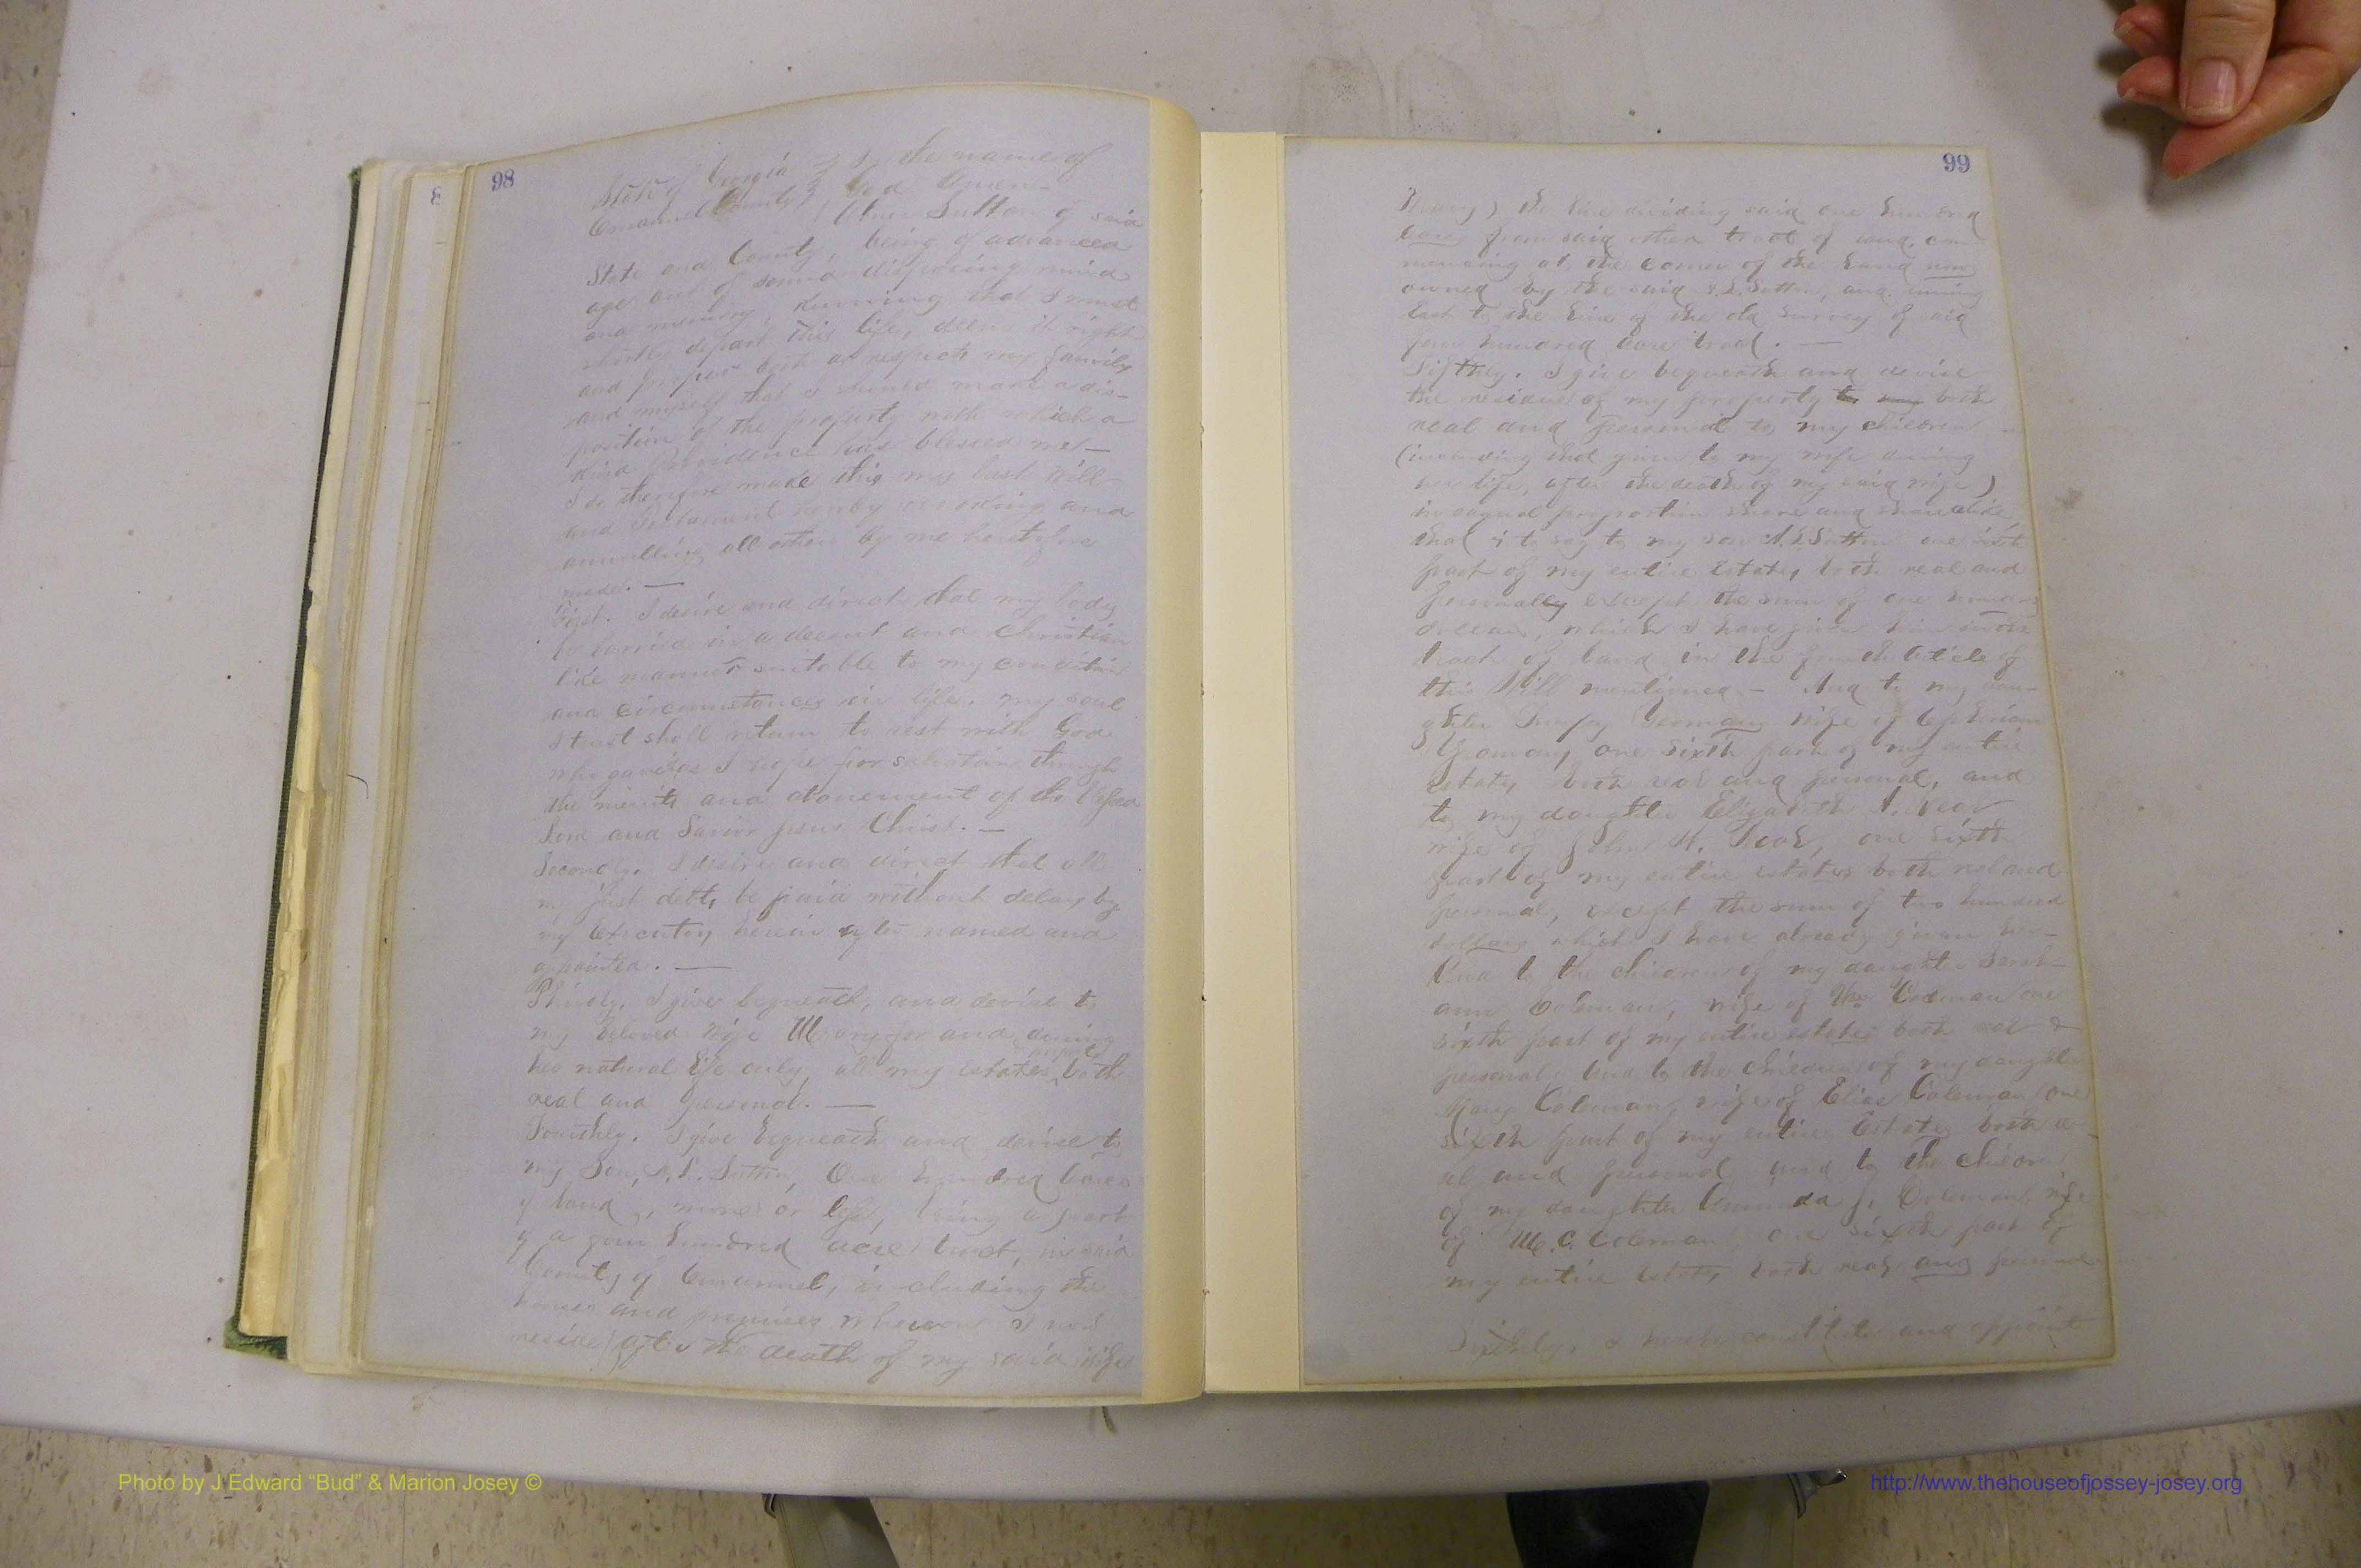 98
State of Georgia } In the name of
Emanuel County } God Amen
I Abner Sutton of said
State and County, being of advanced
age and of sound disposing mind
and memory, knowing that I must
shortly depart this life, deem it right
and proper both as respects my family
and myself that I should make a dis-
position of the property with which a
kind Providence has blessed me—
I do therefore make this my last Will
and Testament hereby revoking and
annulling all others by me heretofore
made. —
First. I desire and direct that my body
be burried in a decent and Christian
like manner suitable to my condition
and circumstances in life, my soul
I trust shall return to rest with God
who gave it as I hope for salvation through
the merits and atonement of the blessed
Lord and Savior Jesus Christ. —
Secondly. I desire and direct that all
my just debts be paid without delay by
my Executor, herein after named and
appointed. —
Thirdly. I give bequeath, and devise to
my beloved wife Mary for and during
her natural life only, all my estates both
real and personal. —
Fourthly. I give bequeath and devise to
my Son, Sutton, One hundred acres
of land, more or less, being a part
of a four hundred acre tract, in said
County of Emanuel, including the
houses and premises whereon I now
reside (after the death of my said wife
99
Mary) the line dividing said one hundred
acres from said other tract of land, com-
mencing at the corner of the land now
owned by the said Sutton, and running
East to the line of the old survey of said
four hundred acre tract. —
Fifthly. I give bequeath and devise
the residue of my property to my both
real and personal to my children
(including that given to my wife during
her life, after the death of my said wife)
in equal proportion share and share alike,
that is to say to my son Sutton one sixth
part of my entire estate, both real and
personally except the sum of one hundred
dollars, which I have given him in one
tract of land in the fourth Article of
this Will mentioned — And to my dau-
ghter Yeomans wife of Ephriam
Yeomans, one sixth part of my entire
estate, both real and personal, and
to my daughter Elizabeth
wife of John one sixth
part of my entire estates both real and
personal, except the sum of two hundred
dollars which I have already given her—
And to the children of my daughter Sarah
ann Coleman, wife of Coleman one
sixth part of my entire estate, both real &
personal, And to the children of my daughter
Mary Coleman, wife of Elias Coleman one
sixth part of my entire Estate, both re-
al and personal and to the children
of my daughter J. Coleman, wife
of M. C. Coleman, one sixth part of
my entire estate, both real and personal
Sixthly, I hereby constitute and appoint
Photo by J Edward “Bud” & Marion Josey ©
http://www.thehouseofjossey-josey.org